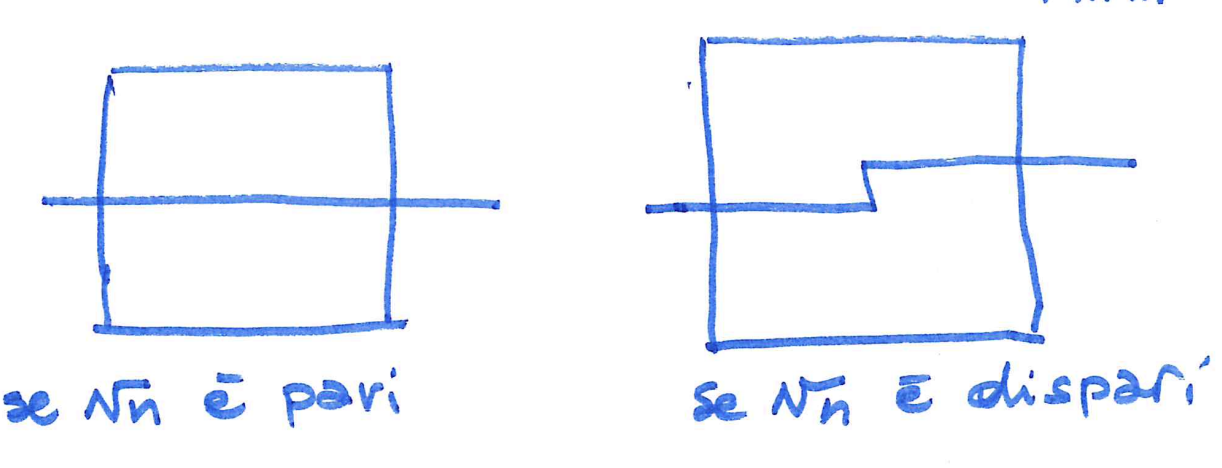 se √n è pari
se √n è dispari